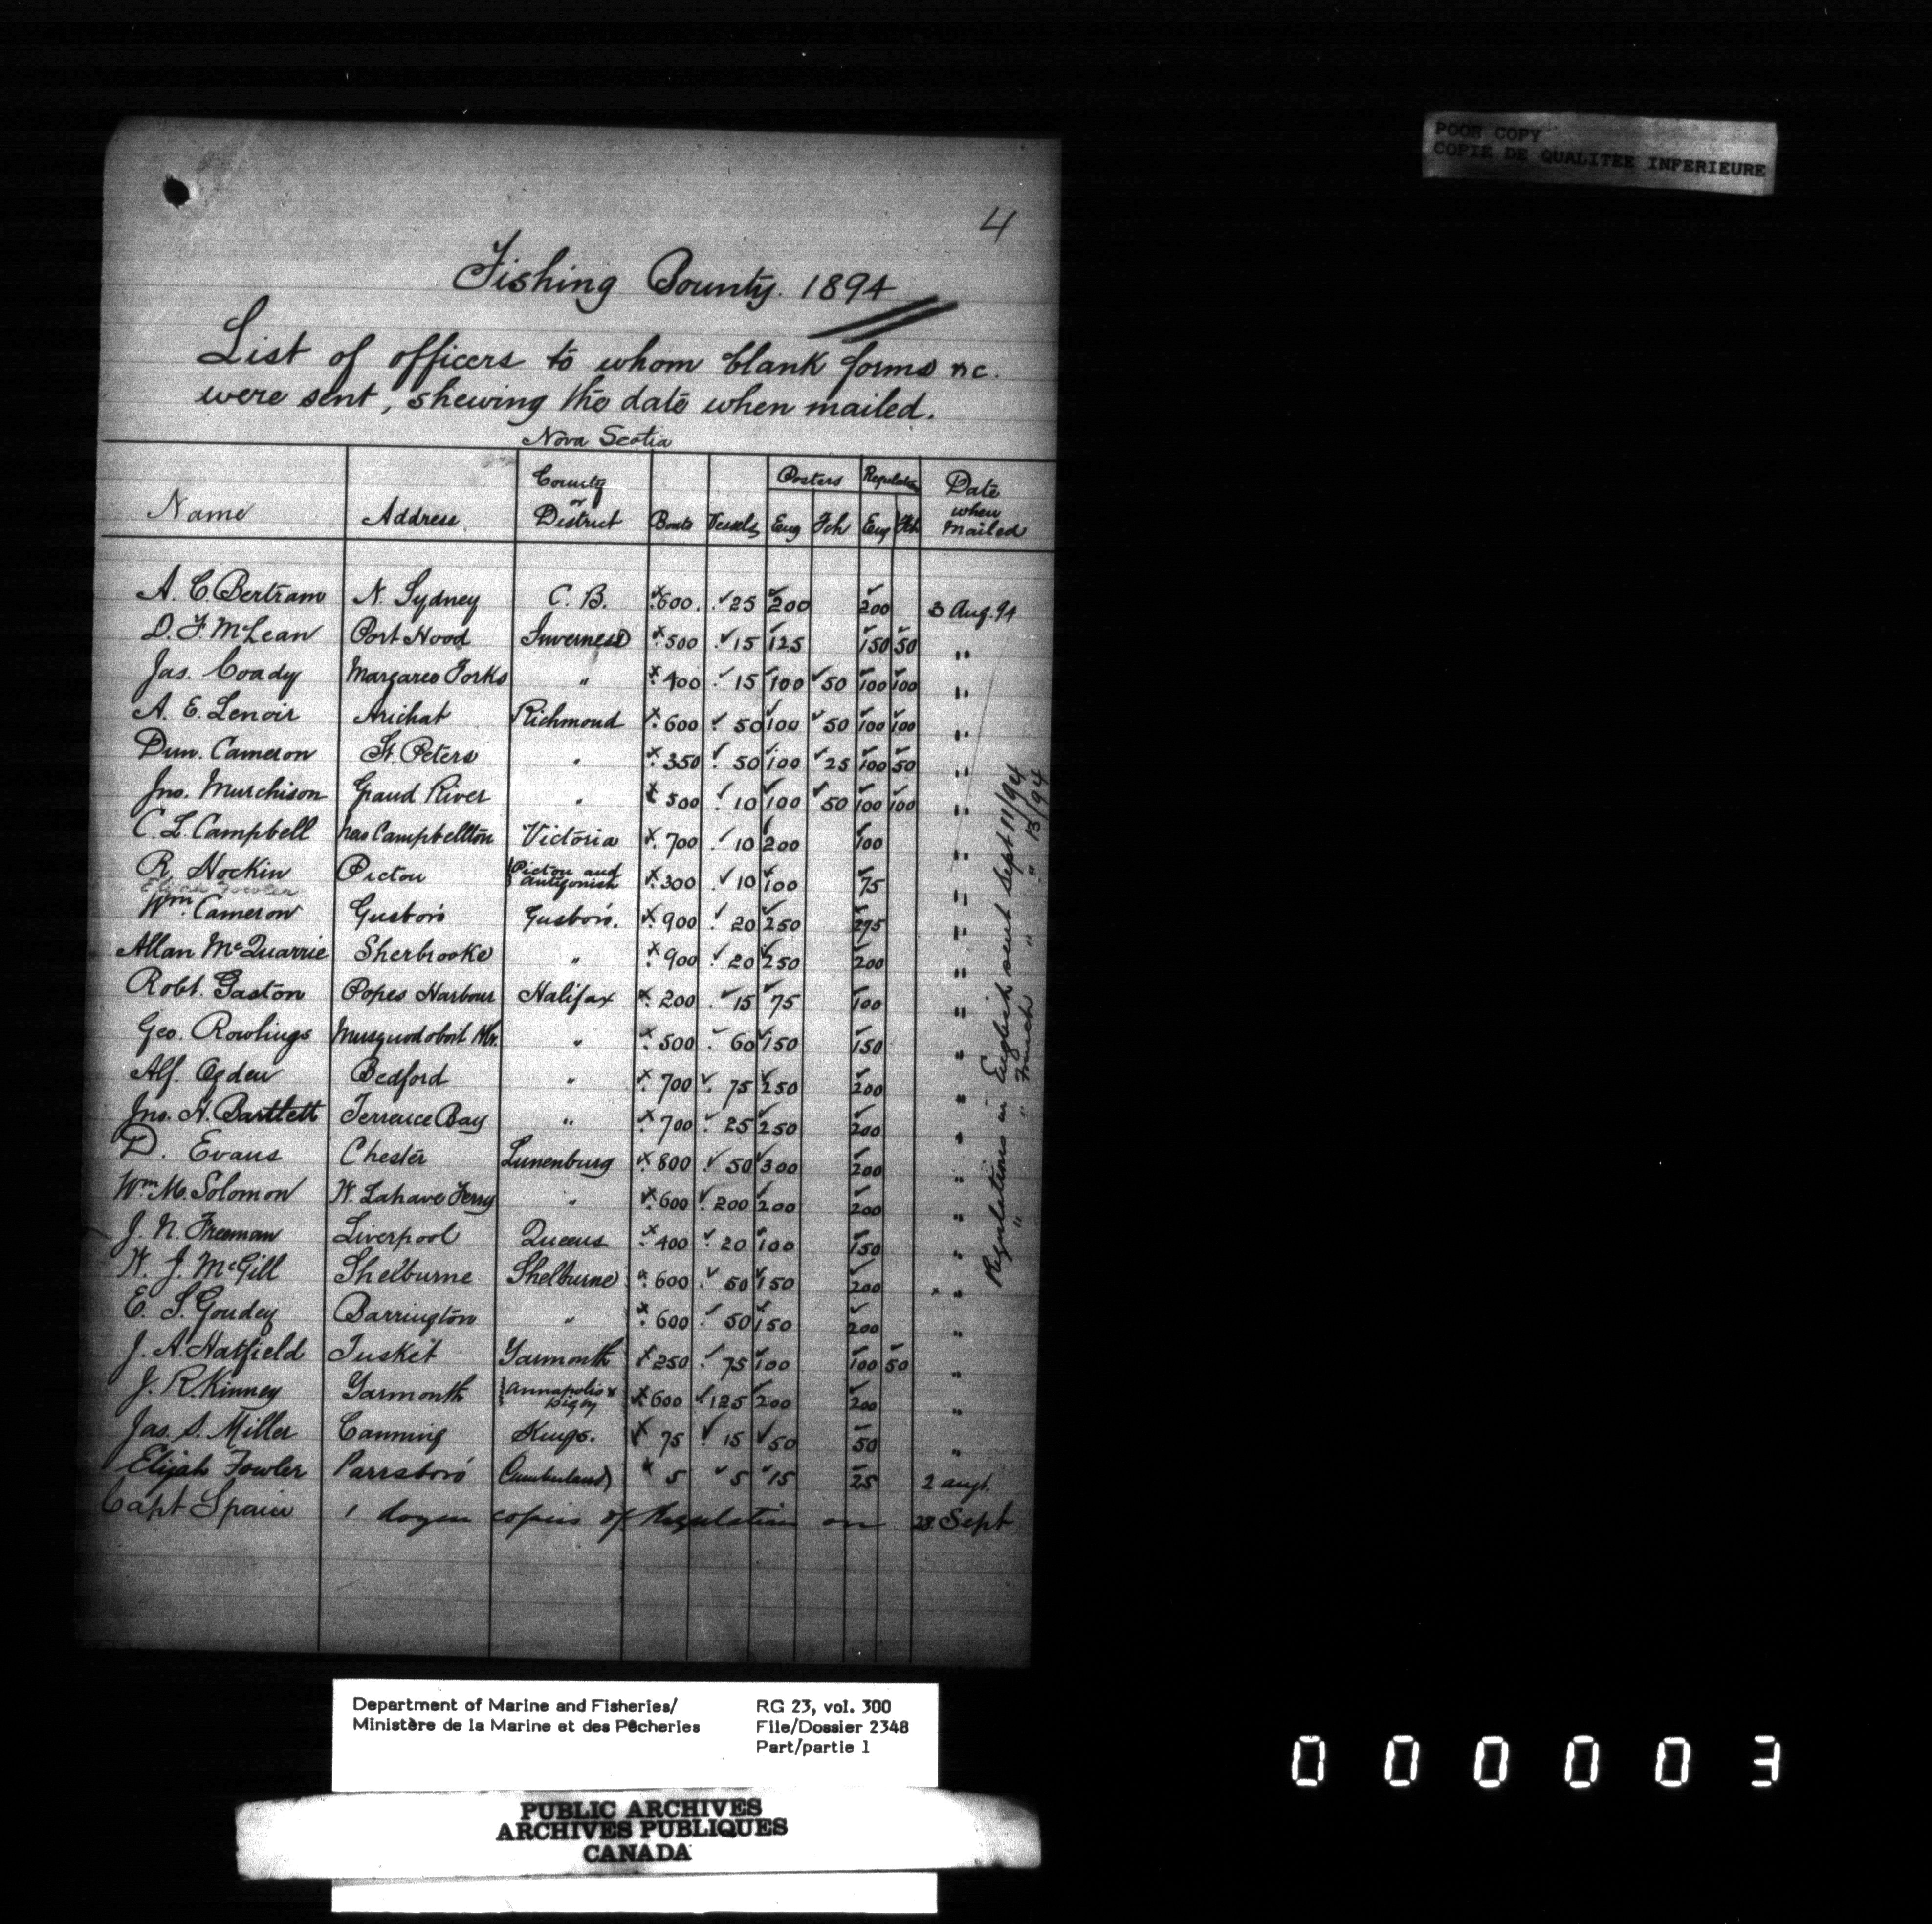 POOR COPY
COPIE DE QUALITEE INFERIEURE
4
Fishing Bounty. 1894
List of officers to whom blank forms &c.
were sent, shewing the date when mailed.
Nova Scotia
Name Address County or District Boats Vessels Posters Eng Fch Regulation Eng Fch Date when mailed
A. C. Bertram N. Sydney C. B. 600 25 200 200 3 Aug. 94
D. F. McLean Port Hood Inverness 500 15 125 150 50 "
Jas. Coady Margaree Forks " 400 15 100 50 100 100 "
A. E. Lenoir Arichat Richmond 600 50 100 50 100 100 "
Dun. Cameron St. Peters " 350 50 100 25 100 50 "
Jno. Murchison Grand River " 500 10 100 50 100 100 "
C. L. Campbell Campbellton Victoria 700 10 200 100 "
R. Hockin Pictou Pictou and Antigonish 300 10 100 75 "
Elijah Fowler
Wm. Cameron Gusboro Gusboro. 900 20 250 275 "
Allan McQuarrie Sherbrooke " 900 20 250 200 "
Robt. Gaston Popes Harbour Halifax 200 15 75 100 "
Geo. Rowlings Musquodoboit Hbr. " 500 60 150 150 "
Alf. Ogden Bedford " 700 75 250 200 "
Jno. H. Bartlett Terrence Bay " 700 25 250 200 "
D. Evans Chester Lunenburg 800 50 300 200 "
Wm. M. Solomon W. Lahave Ferry " 600 200 200 200 "
J. N. Freeman Liverpool Queens 400 20 100 150 "
W. J. McGill Shelburne Shelburne 600 50 150 200 "
E. S. Goudey Barrington " 600 50 150 200 "
J. A. Hatfield Tusket Yarmouth 250 75 100 100 50 "
J. R. Kinney Yarmouth Annapolis & Digby 600 125 200 200 "
Jas. S. Miller Canning Kings. 75 15 50 50 "
Elijah Fowler Parrsboro Cumberland 5 5 15 25 2 augt.
Capt Spain 1 dozen copies of Regulation on 28 Sept
Regulations in English sent Sept 11/94
" " French " " 13/94
Department of Marine and Fisheries/ RG 23, vol. 300
Ministère de la Marine et des Pêcheries File/Dossier 2348
Part/partie 1
PUBLIC ARCHIVES
ARCHIVES PUBLIQUES
CANADA
000003